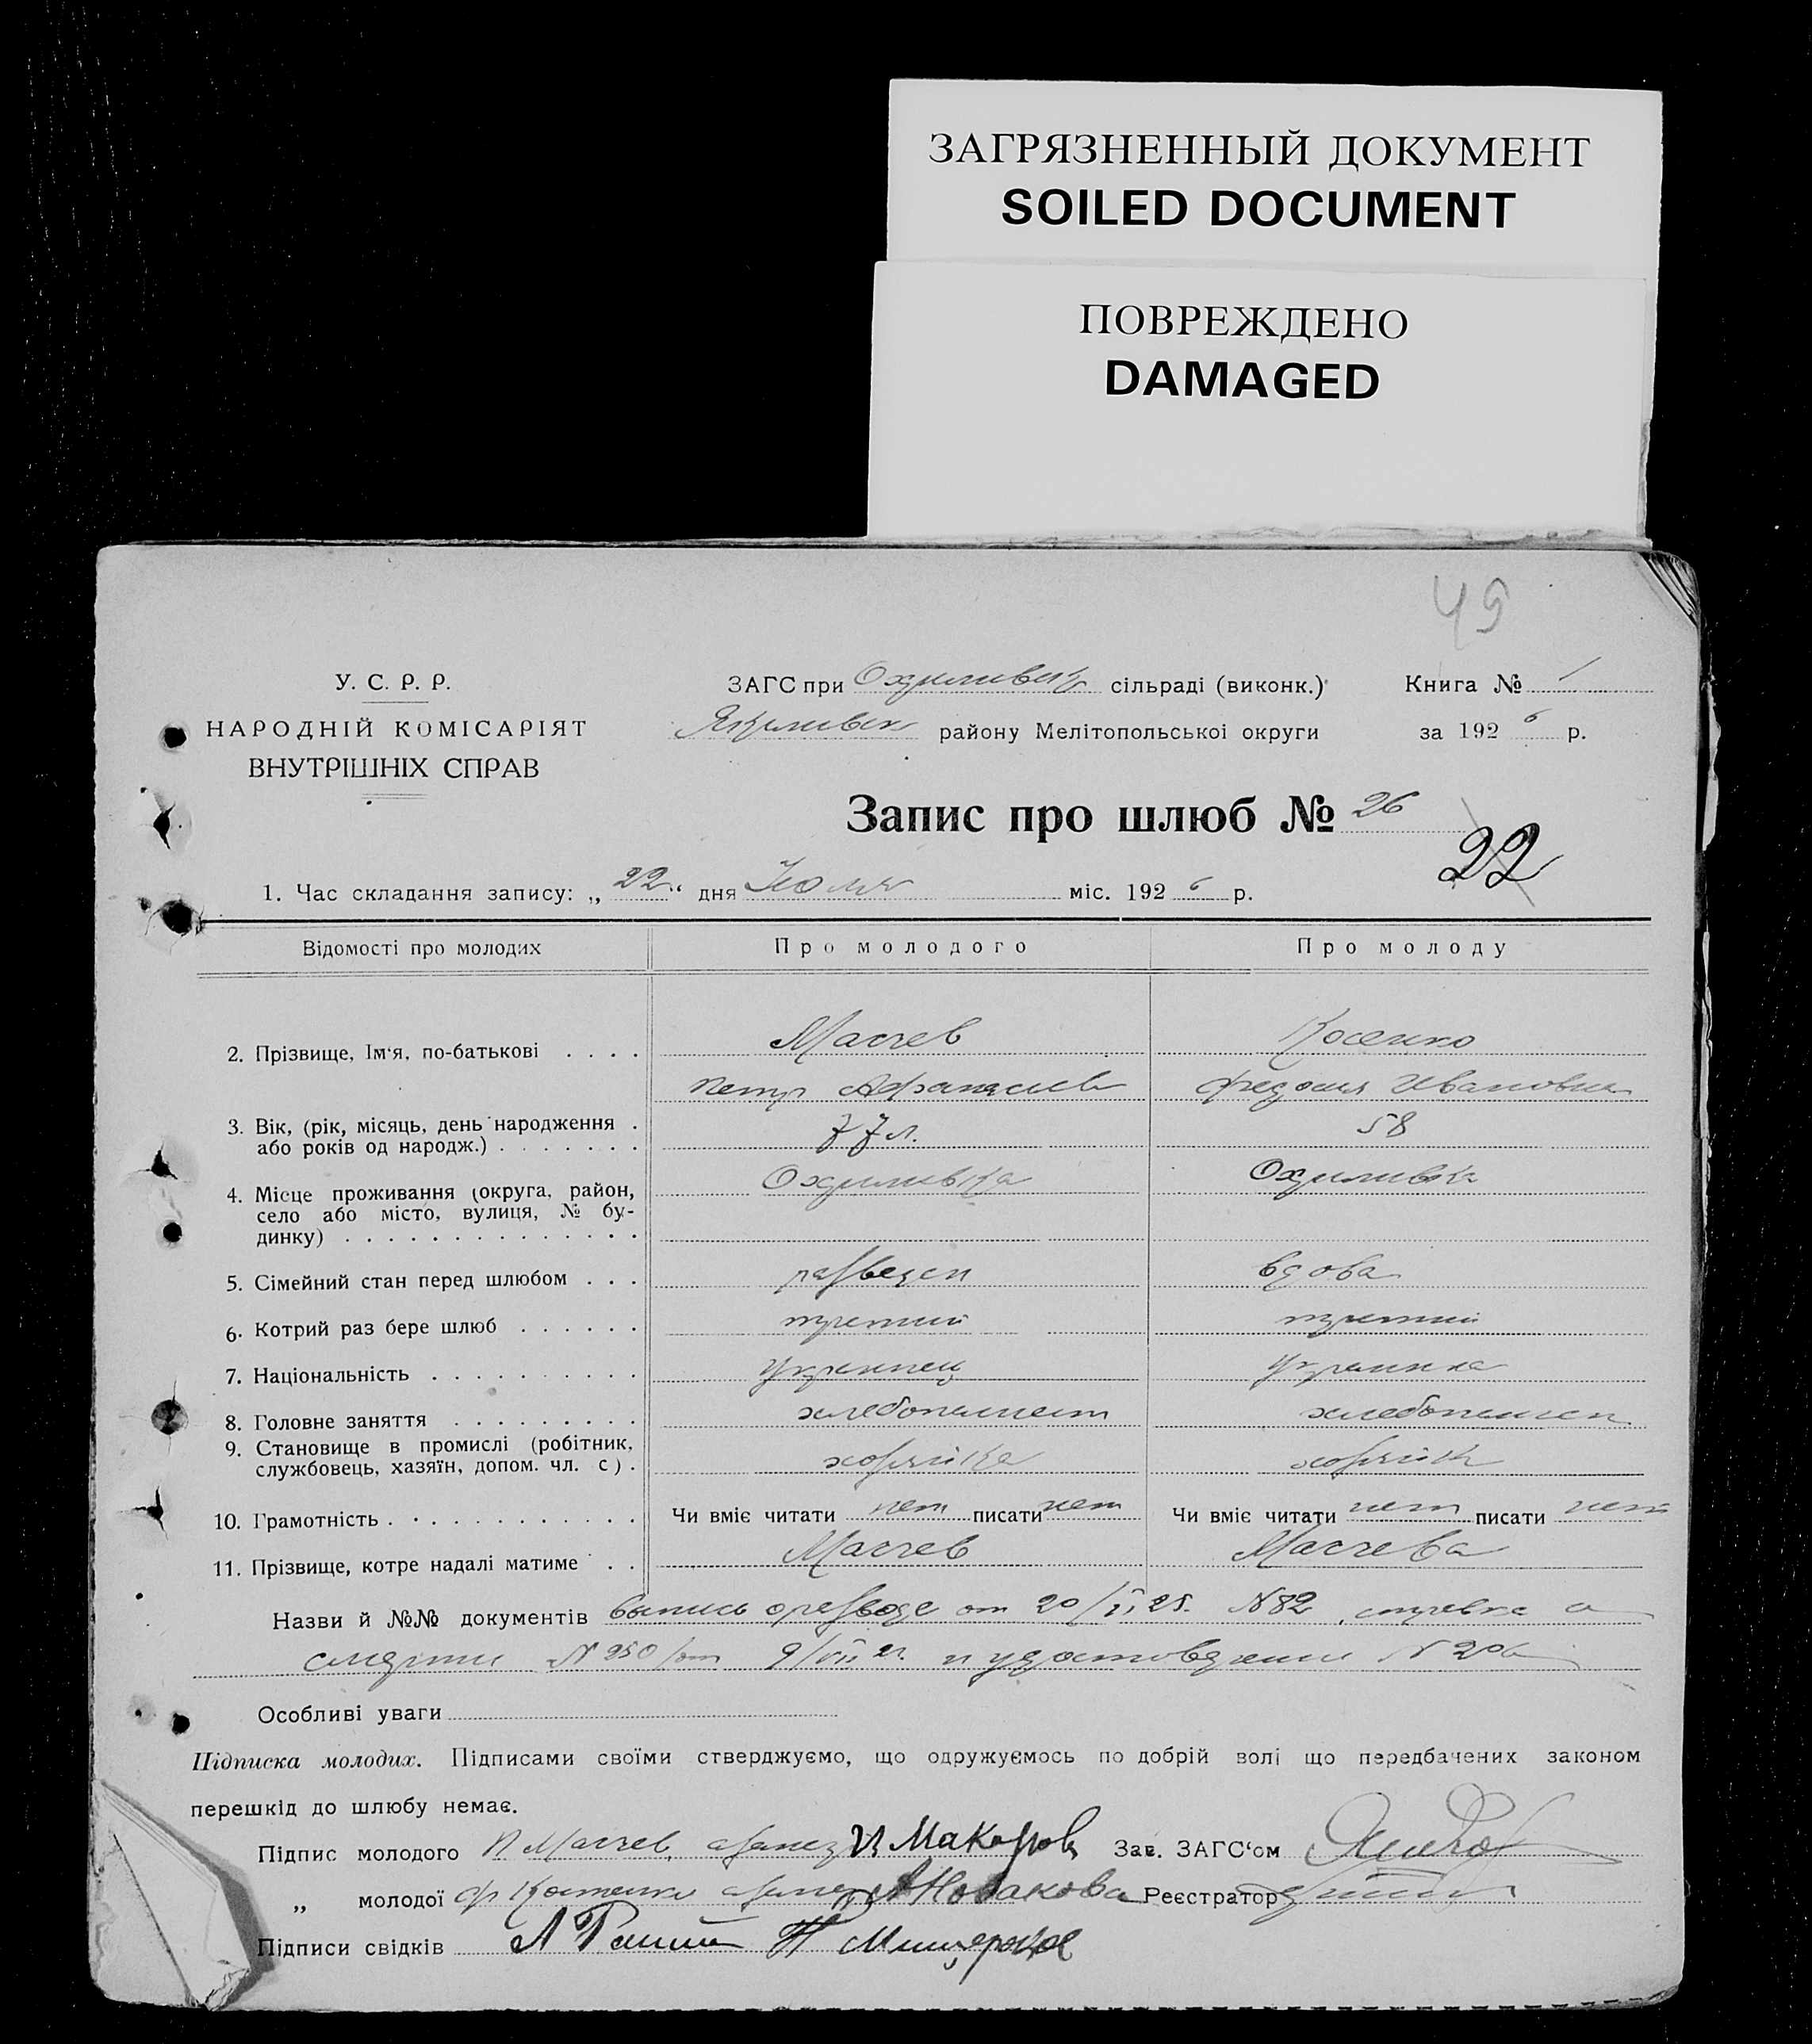 ЗАГРЯЗНЕННЫЙ ДОКУМЕНТ
SOILED DOCUMENT
ПОВРЕЖДЕНО
DAMAGED
49
У. С. Р. Р.
НАРОДНІЙ КОМІСАРІЯТ
ВНУТРІШНІХ СПРАВ
ЗАГС при сільраді (виконк.) Книга № 1
району Мелітопольської округи за 1926 р.
Запис про шлюб № 26
22
1. Час складання запису: „22“ дня Июля міс. 1926 р.
Відомості про молодих Про молодого Про молоду
2. Прізвище, Ім'я, по-батькові . . . . Масчев Косенко
Петр Афанасиев Федосия Ивановна
3. Вік, (рік, місяць, день народження . 77 л. 58
або років од народж.) . . . . . . .
4. Місце проживання (округа, район, Охримивка Охримивка
село або місто, вулиця, № бу-
динку) . . . . . . . . . . . . . .
5. Сімейний стан перед шлюбом . . . разведен вдова
6. Котрий раз бере шлюб . . . . . . третий третий
7. Національність . . . . . . . . . . Украинец Украинка
8. Головне заняття . . . . . . . . . хлебопашест хлебопашен
9. Становище в промислі (робітник, хозяйка хозяйк
службовець, хазяїн, допом. чл. с) .
10. Грамотність . . . . . . . . . . . Чи вміє читати нет писати нет Чи вміє читати нет писати нет
11. Прізвище, котре надалі матиме . . Масчев Масчева
Назви й №№ документів выпись о разводе от 20/ 25. N 82, справка о
смерти N 250/от 9/VII и удостоверении N 206
Особливі уваги
Підписка молодих. Підписами своїми стверджуємо, що одружуємось по добрій волі що передбачених законом
перешкід до шлюбу немає.
Підпис молодого П Масчев Макаров Зав. ЗАГС‘ом
„ молодої Ф Новакова Реєстратор
Підписи свідків